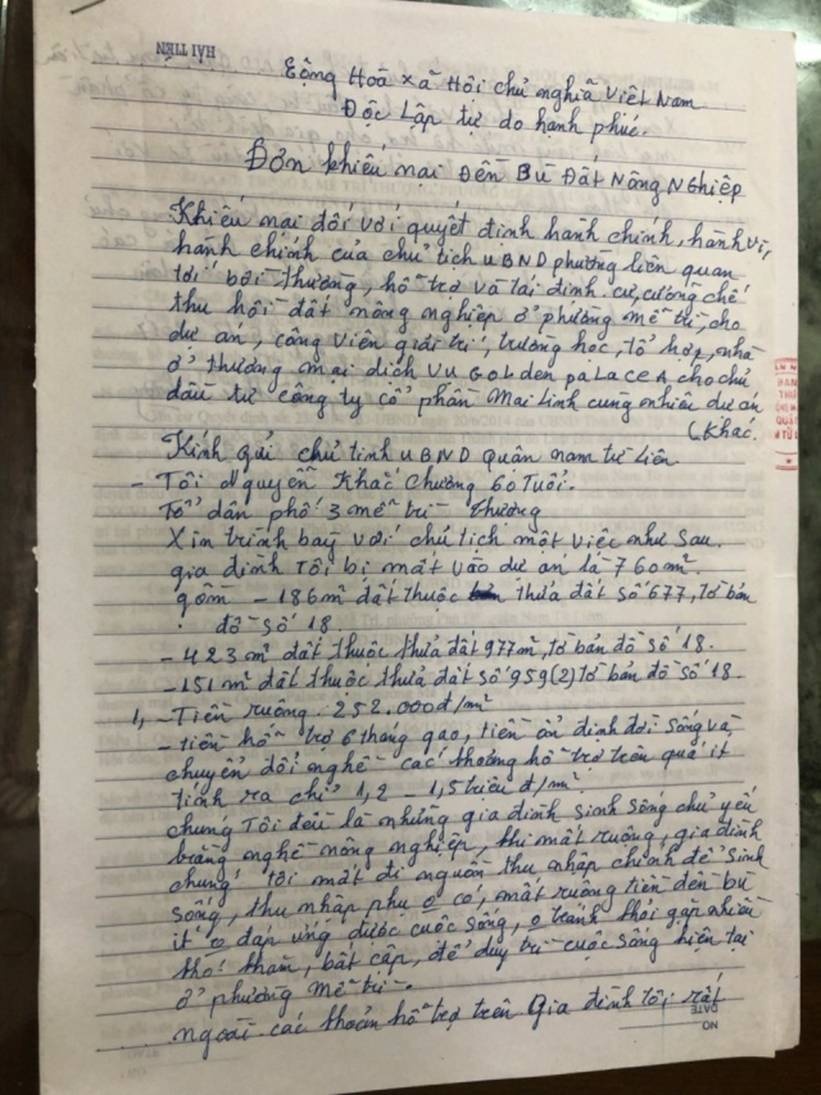 HẢI TIẾN
Cộng Hoà xã Hội chủ nghĩa Việt Nam
Độc Lập tự do hạnh phúc.
Đơn khiếu nại Đền Bù Đất Nông Nghiệp
Khiếu nại đối với quyết định hành chính, hành vi,
hành chính của chủ tịch UBND phường liên quan
tới bồi thường, hỗ trợ và tái định cư, cưỡng chế
thu hồi đất nông nghiệp ở phường mễ trì, cho
dự án, công viên giải trí, trường học, tổ hợp, nhà
ở thương mại dịch vụ GOLden paLaceA cho chủ
đầu tư công ty cổ phần Mai Linh cùng nhiều dự án
(khác.
Kính gửi chủ tịnh UBND Quận nam từ liên.
- Tôi Nguyễn Khắc Chương 60 Tuổi.
Tổ dân phố 3 mễ trì Thượng
Xin trình bày với chủ tịch một việc như sau.
gia đình Tôi bị mất vào dự án là 760m².
gồm - 186m² đất thuộc thửa đất số 677, tờ bản
đồ số 18.
- 423 m² đất thuộc thửa đất 977m, tờ bản đồ số 18.
- 151 m² đất thuộc thửa đất số 959(2) tờ bản đồ số 18.
1, - Tiền ruộng. 252.000đ/m²
- tiền hỗ trợ 6 tháng gạo, tiền ổn định đời sống và,
chuyển đổi nghề các khoảng hỗ trợ trên quá ít
tính ra chỉ 1,2 - 1,5 triệu đ/m².
chúng Tôi đều là những gia đình sinh sống chủ yếu
bằng nghề nông nghiệp, khi mất ruộng, gia đình
chúng tôi mất đi nguồn thu nhập chính để sinh
sống, thu nhập phụ o có, mất ruộng tiền đền bù
ít o đáp ứng được cuộc sống, o tránh khỏi gặp nhiều
khó khăn, bất cập, để duy trì cuộc sống hiện tại
ở phường mễ trì.
ngoài các khoản hỗ trợ trên Gia đình tôi rất
NO
DATE